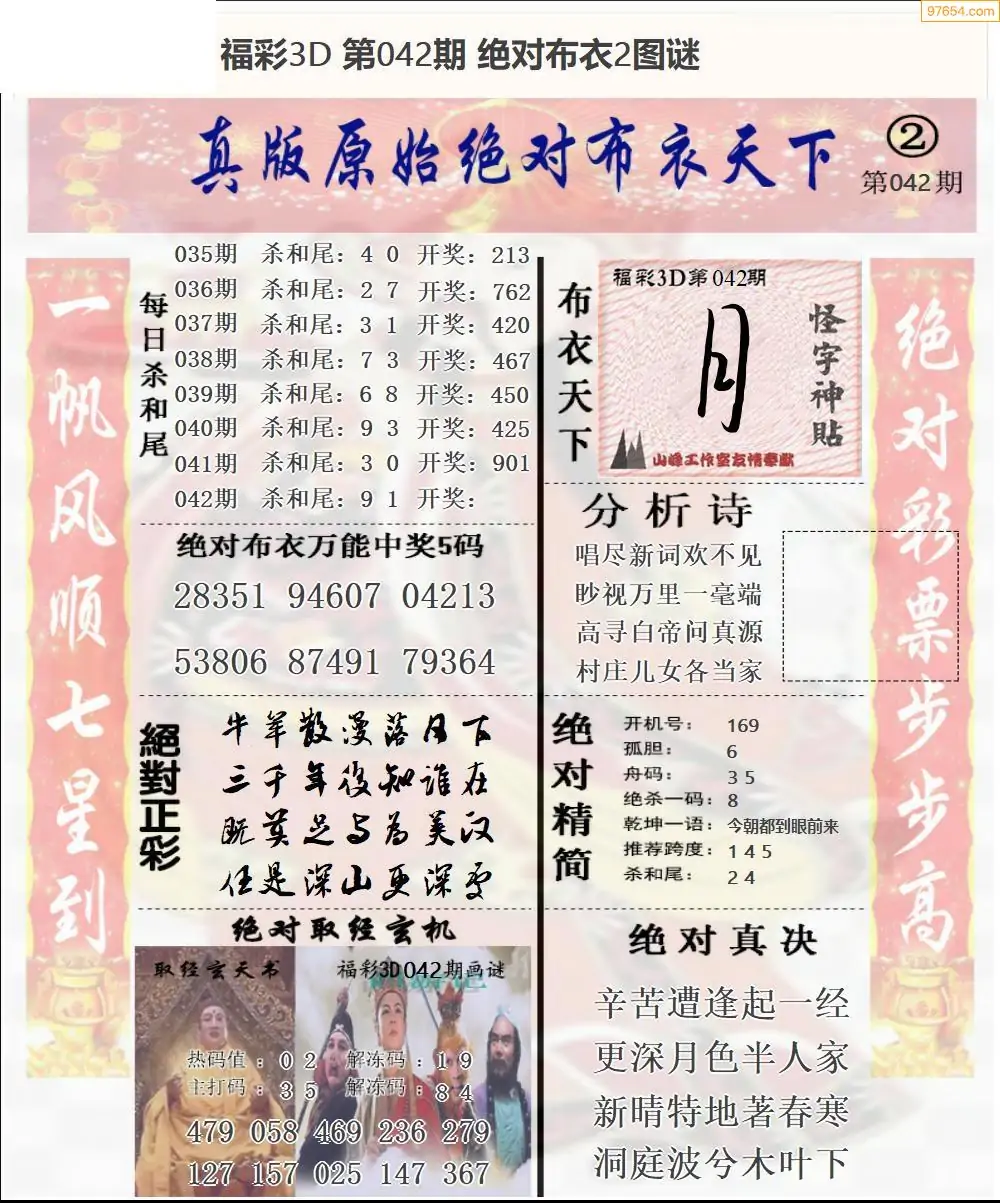 97654.com
福彩3D 第042期 绝对布衣2图谜
真版原始绝对布衣天下
②
第042期
一帆风顺七星到
每日杀和尾
035期 杀和尾：4 0 开奖：213
036期 杀和尾：2 7 开奖：762
037期 杀和尾：3 1 开奖：420
038期 杀和尾：7 3 开奖：467
039期 杀和尾：6 8 开奖：450
040期 杀和尾：9 3 开奖：425
041期 杀和尾：3 0 开奖：901
042期 杀和尾：9 1 开奖：
绝对布衣万能中奖5码
28351 94607 04213
53806 87491 79364
絕對正彩
牛羊散漫落月下
三千年後知谁在
既莫足与为美汉
任是深山更深雪
绝对取经玄机
取经玄天书
福彩3D042期画谜
热码值：0 2 解冻码：1 9
主打码：3 5 解冻码：8 4
479 058 469 236 279
127 157 025 147 367
布衣天下
福彩3D第042期
月
怪字神贴
山峰工作室友情奉献
分析诗
唱尽新词欢不见
眇视万里一毫端
高寻白帝问真源
村庄儿女各当家
绝对精简
开机号： 169
孤胆： 6
舟码： 3 5
绝杀一码：8
乾坤一语：今朝都到眼前来
推荐跨度：1 4 5
杀和尾： 2 4
绝对真决
辛苦遭逢起一经
更深月色半人家
新晴特地著春寒
洞庭波兮木叶下
绝对彩票步步高